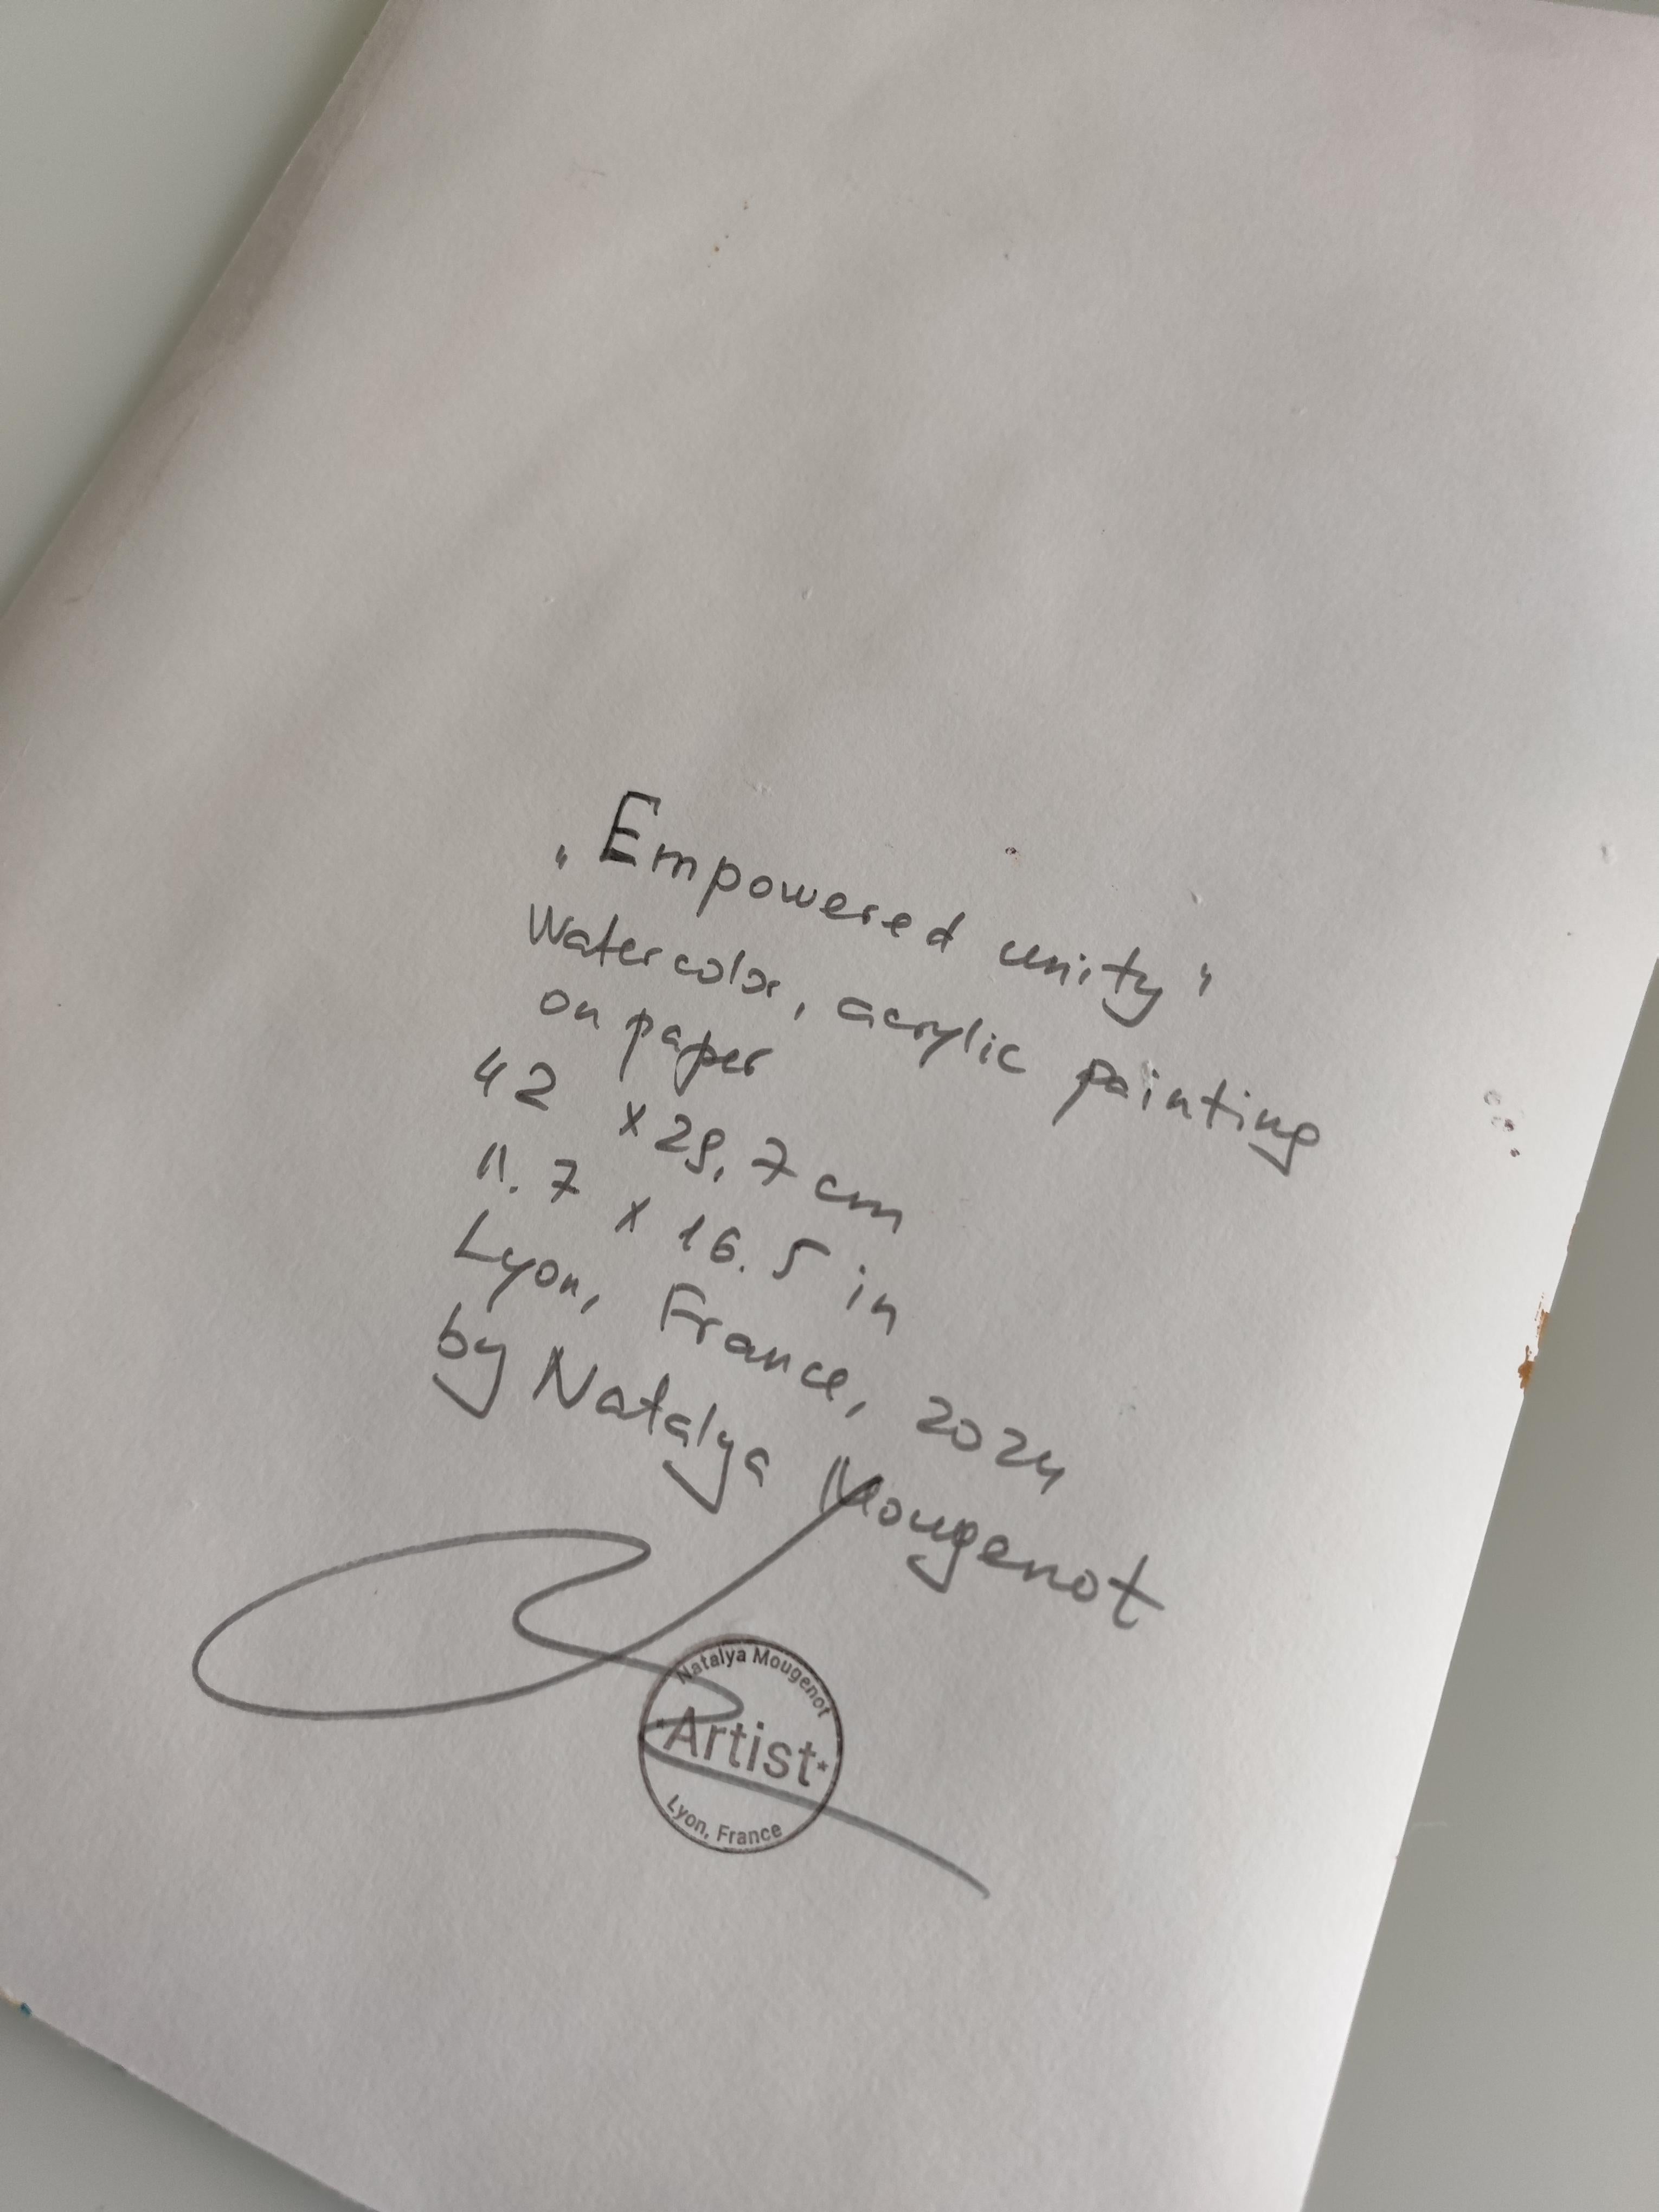 „Empowered unity"
Watercolor, acrylic painting
on paper
42 x 29,7 cm
11.7 x 16.5 in
Lyon, France, 2024
by Natalya Mougenot
Natalya Mougenot
*Artist*
Lyon, France